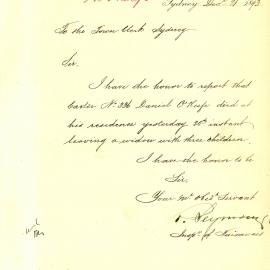 Sydney Dec. 21. 1892
To the Town Clerk Sydney
Sir.
I have the honor to report that
Carter No. 336 Daniel O'Keefe died at
his residence yesterday 20th instant
leaving a widow with three children.
I have the honor to be
Sir.
Your Mo. Obdt. Servant
Seymour
Inspr. of Nuisances